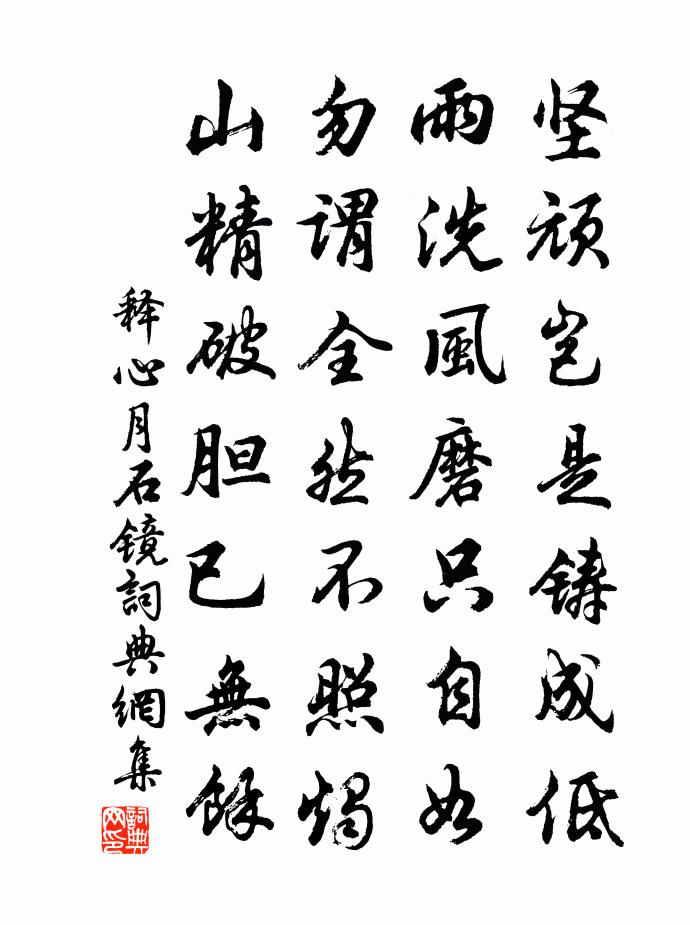 坚顽岂是铸成低
雨洗風磨只自如
勿谓全然不照烛
山精破胆已無餘
释心月石镜詞典網集
詞典网印